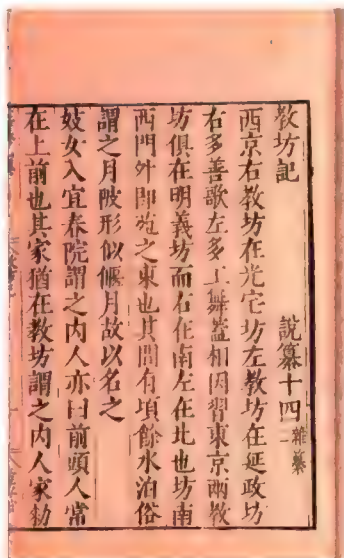 教坊記　說纂十四 雜纂二
西京右教坊在光宅坊左教坊在延政坊
右多善歌左多工舞蓋相因習東京兩教
坊俱在明義坊而右在南左在北也坊南
西門外即苑之東也其間有頃餘水泊俗
謂之月陂形似偃月故以名之
妓女入宜春院謂之内人亦曰前頭人常
在上前也其家猶在教坊謂之内人家勑